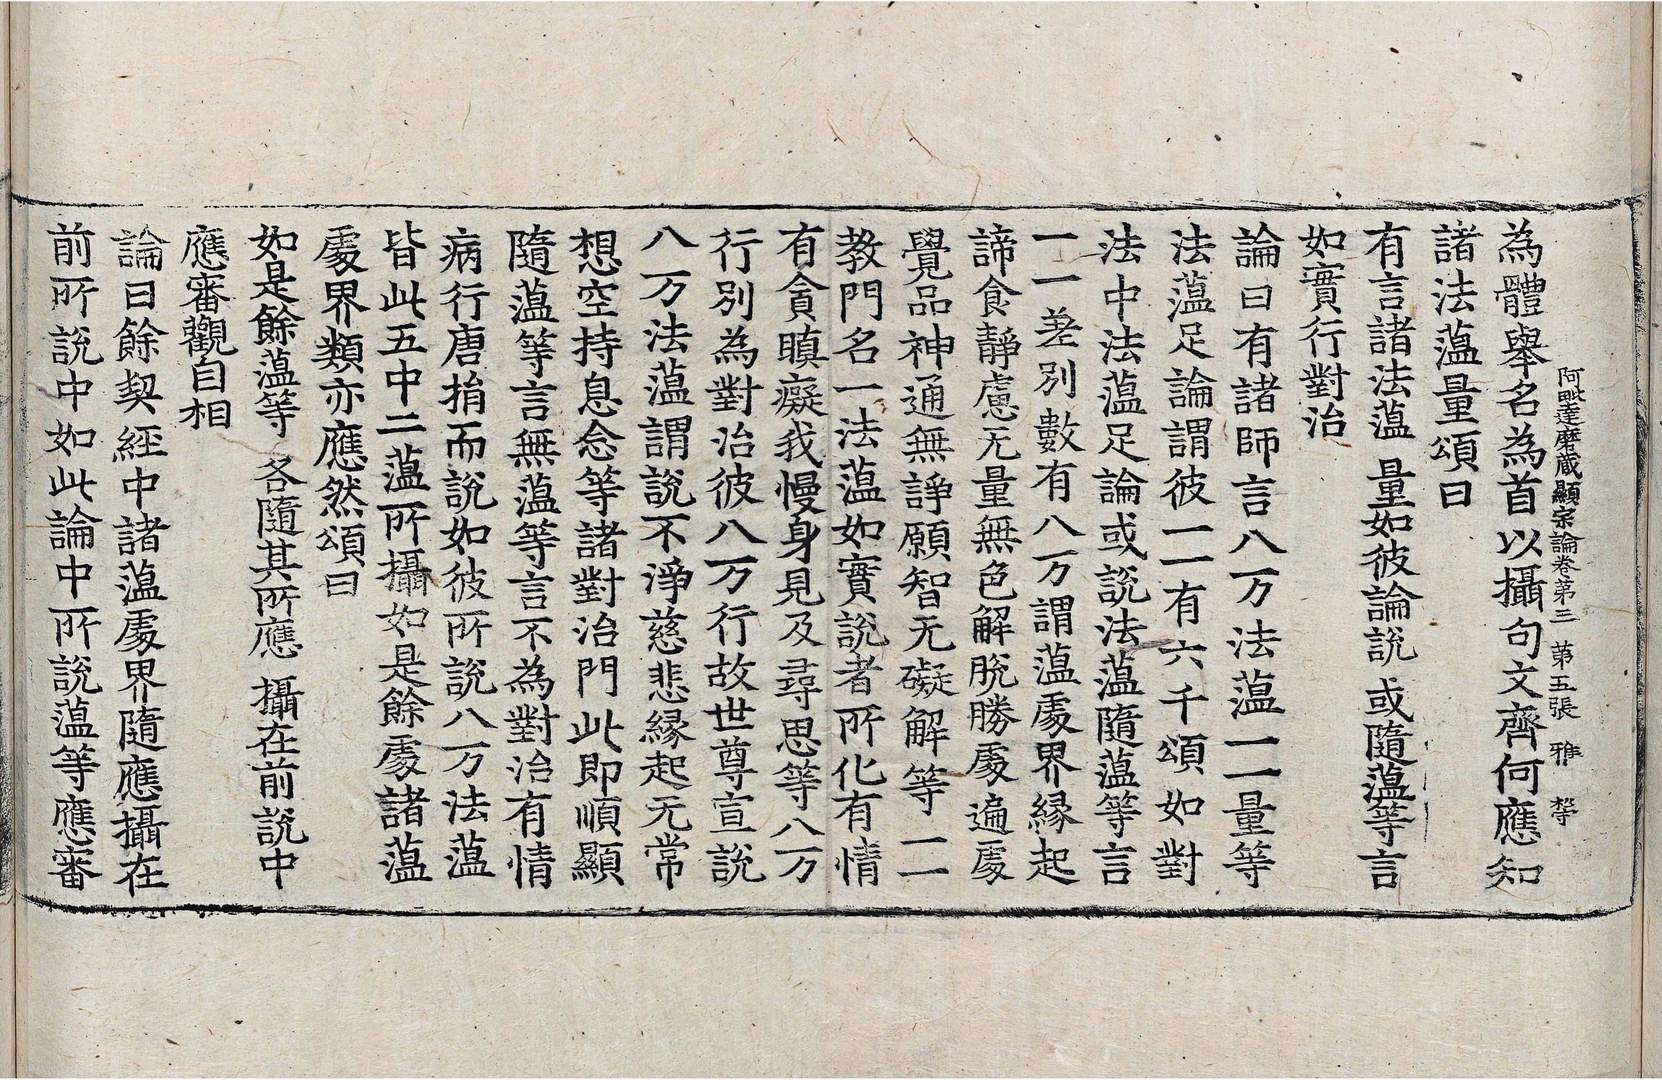 阿毗達磨藏顯宗論卷第三 第五張 雅
為體舉名為首以攝句文齊何應知
諸法蘊量頌曰
有言諸法蘊 量如彼論說 或隨蘊等言
如實行對治
論曰有諸師言八万法蘊一一量等
法蘊足論謂彼一一有六千頌如對
法中法蘊足論或說法蘊隨蘊等言
一一差別數有八万謂蘊處界緣起
諦食靜慮无量無色解脫勝處遍處
覺品神通無諍願智无礙解等一一
教門名一法蘊如實說者所化有情
有貪瞋癡我慢身見及尋思等八万
行別為對治彼八万行故世尊宣說
八万法蘊謂說不淨慈悲緣起无常
想空持息念等諸對治門此即順顯
隨蘊等言無蘊等言不為對治有情
病行唐捐而說如彼所說八万法蘊
皆此五中二蘊所攝如是餘處諸蘊
處界類亦應然頌曰
如是餘蘊等 各隨其所應 攝在前說中
應審觀自相
論曰餘契經中諸蘊處界隨應攝在
前所說中如此論中所說蘊等應審